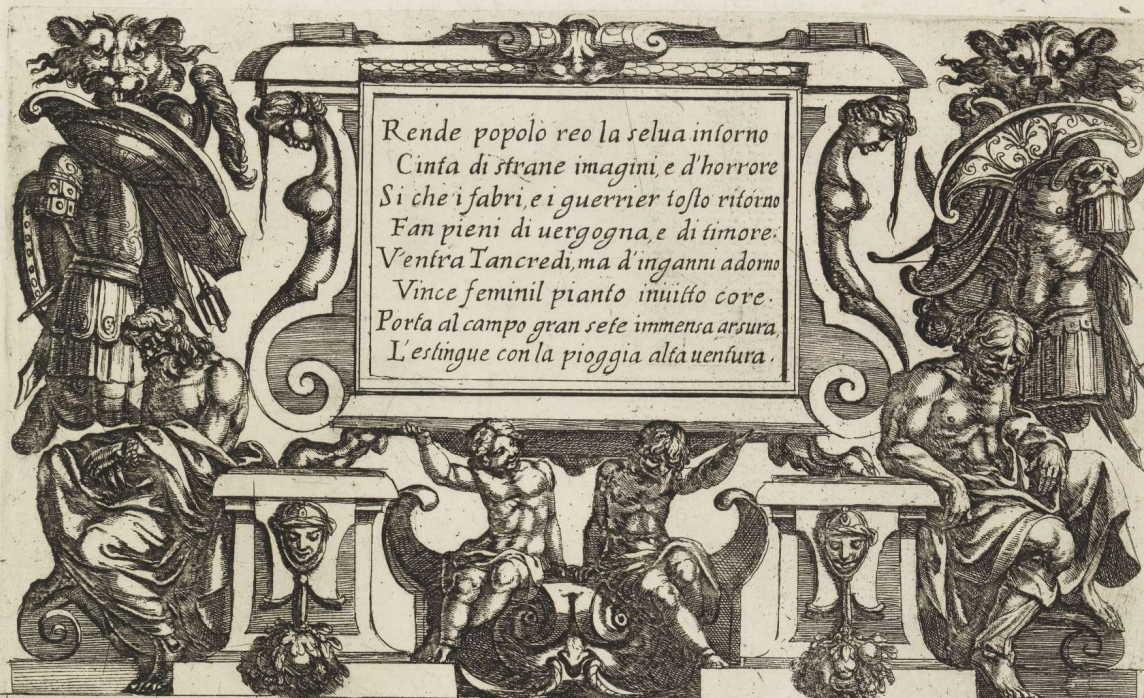 Rende popolo reo la selua intorno
Cinta di strane imagini, e d'horrore
Si che i fabri, e i guerrier tosto ritorno
Fan pieni di uergogna, e di timore.
V'entra Tancredi, ma d'inganni adorno
Vince feminil pianto inuitto core.
Porta al campo gran sete immensa arsura,
L'estingue con la pioggia alta uentura.